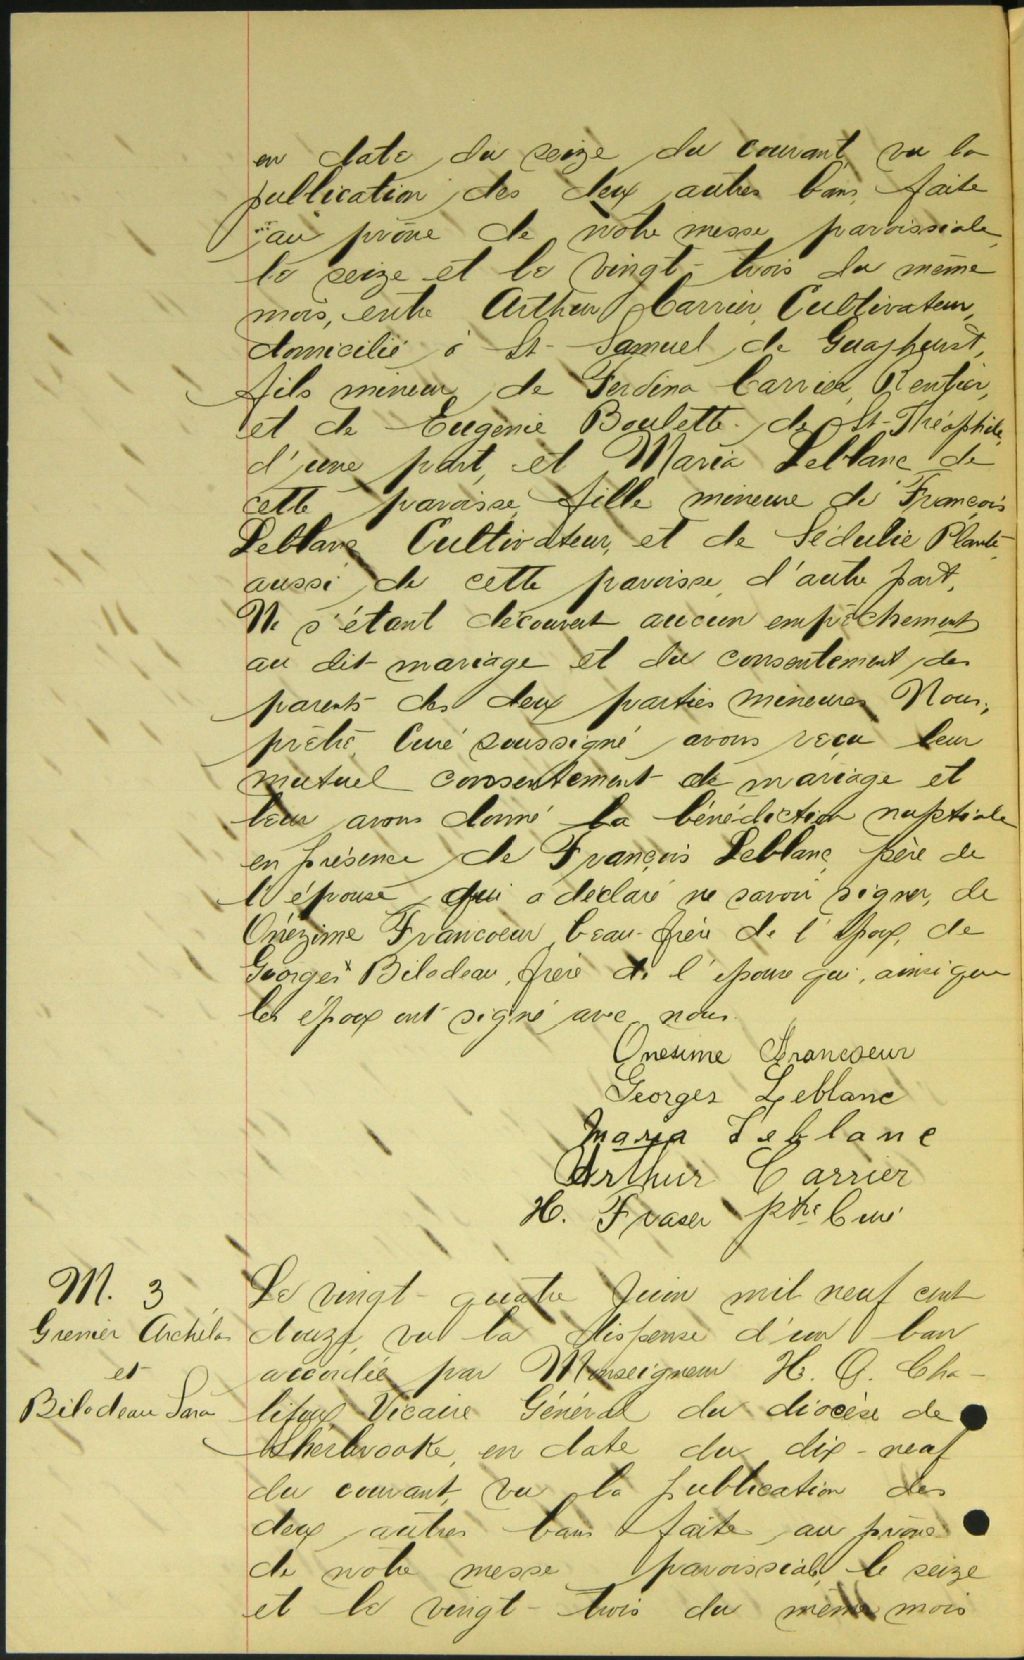 en date du seize du courant vu la
publication des deux autres bans, faite
au prône de notre messe paroissiale,
le seize et le vingt-trois du même
mois, entre Arthur Carrier, Cultivateur,
domicilié à St-Samuel de Guayhurst,
fils mineur de Ferdina Carrier, Rentier,
et de Eugénie Boulette de St-Théophile,
d'une part, et Maria Leblanc de
cette paroisse, fille mineure de François
Leblanc Cultivateur, et de Sédulie Plante
aussi de cette paroisse, d'autre part.
Ne s'étant découvert aucun empêchement
au dit mariage et du consentement des
parents des deux parties mineures Nous,
prêtre, Curé soussigné avons reçu leur
mutuel consentement de mariage et
leur avons donné la bénédiction nuptiale
en présence de François Leblanc, père de
l'épouse qui a déclaré ne savoir signer, de
Onézime Francoeur, beau-frère de l'époux, de
Georges Bilodeau, frère de l'épouse qui, ainsi que
les époux ont signé avec nous.
Onesime Francoeur
Georges Leblanc
Maria Leblanc
Arthur Carrier
H. Fraser ptre Curé
M. 3
Grenier Archélas
et
Bilodeau Sara
Le vingt-quatre Juin mil neuf cent
douze, vu la dispense d'un ban
accordée par Monseigneur H. O. Cha-
lifoux Vicaire Général du diocèse de
Sherbrooke, en date du dix-neuf
du courant, vu la publication des
deux autres bans faite au prône
de notre messe paroissiale le seize
et le vingt-trois du même mois